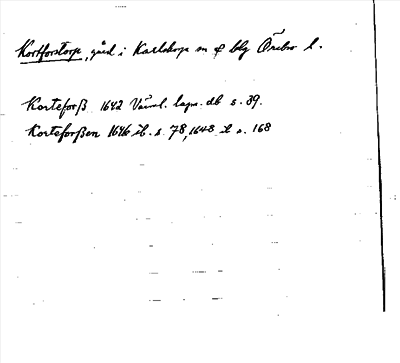 Kortforstorp, gård i Karlskoga sn o bbg Örebro l.
Korteforß 1642 Värml. lagm. db s. 39.
Korteforßen 1646 ib. s. 78, 1648 ib s. 168